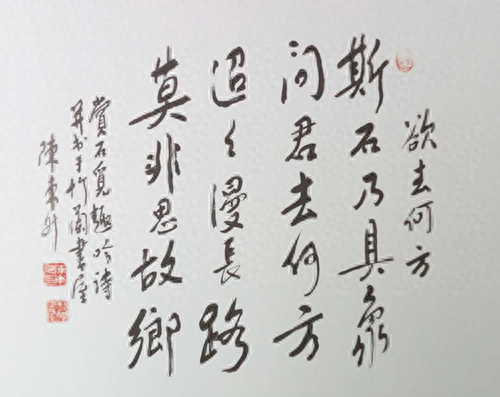 欲去何方
斯石乃具象
问君去何方
迢迢漫長路
莫非思故鄉
賞石覓趣吟詩
并书于竹蘭書屋
陳東升